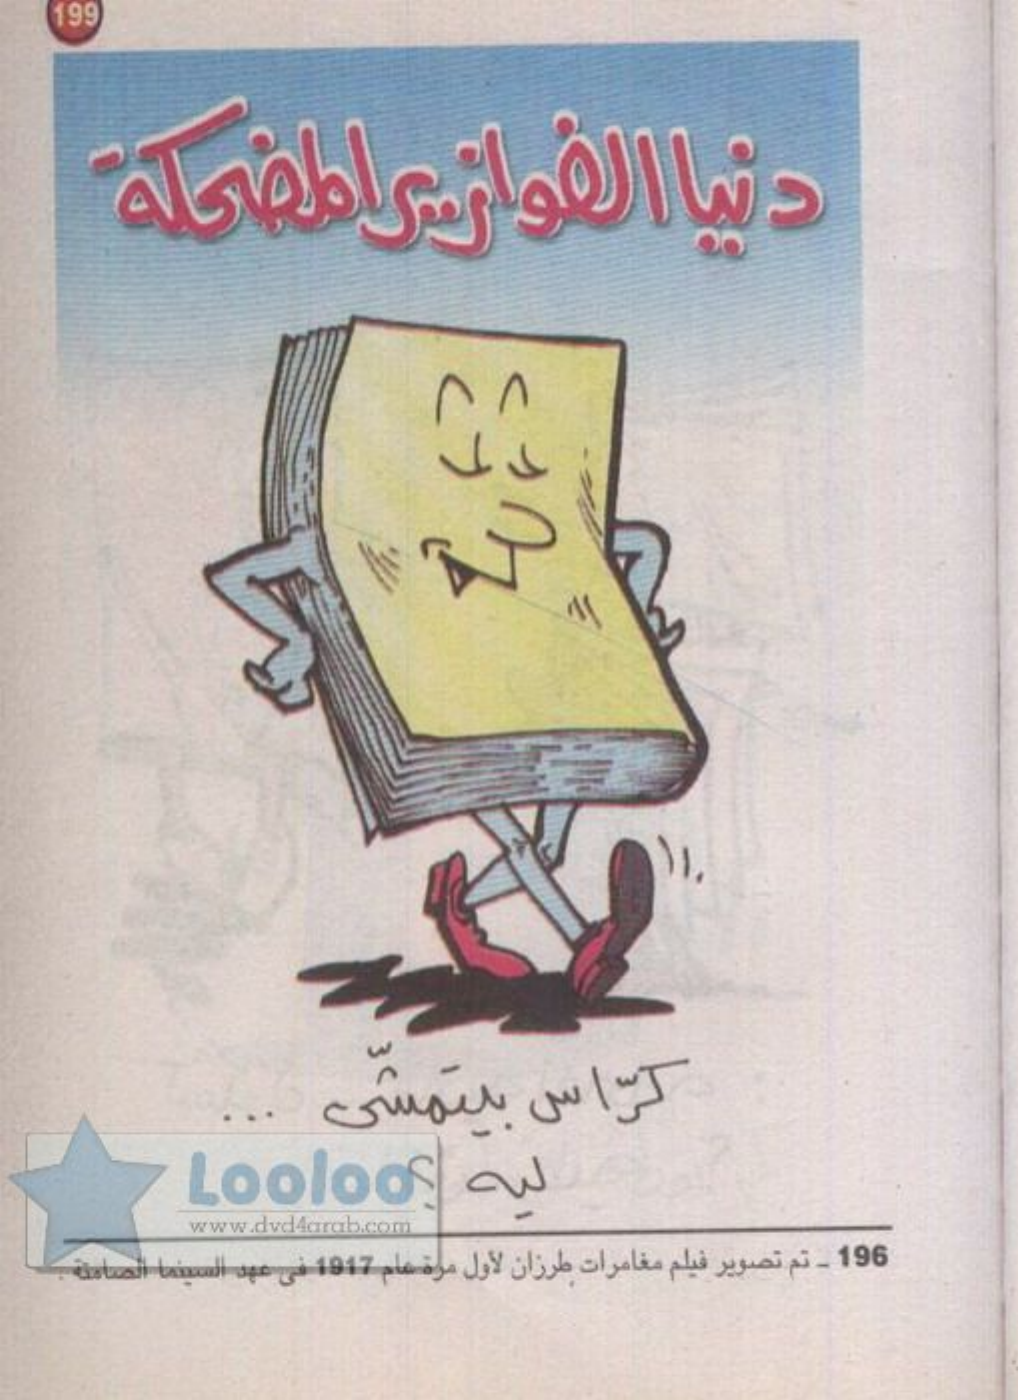 199
دنيا الفوازير المضحكة
كرّاس بيتمشّى ...
ليه ؟
Looloo
www.dvd4arab.com
196 ـ تم تصوير فيلم مغامرات طرزان لأول مرة عام 1917 فى عهد السينما الصامتة .